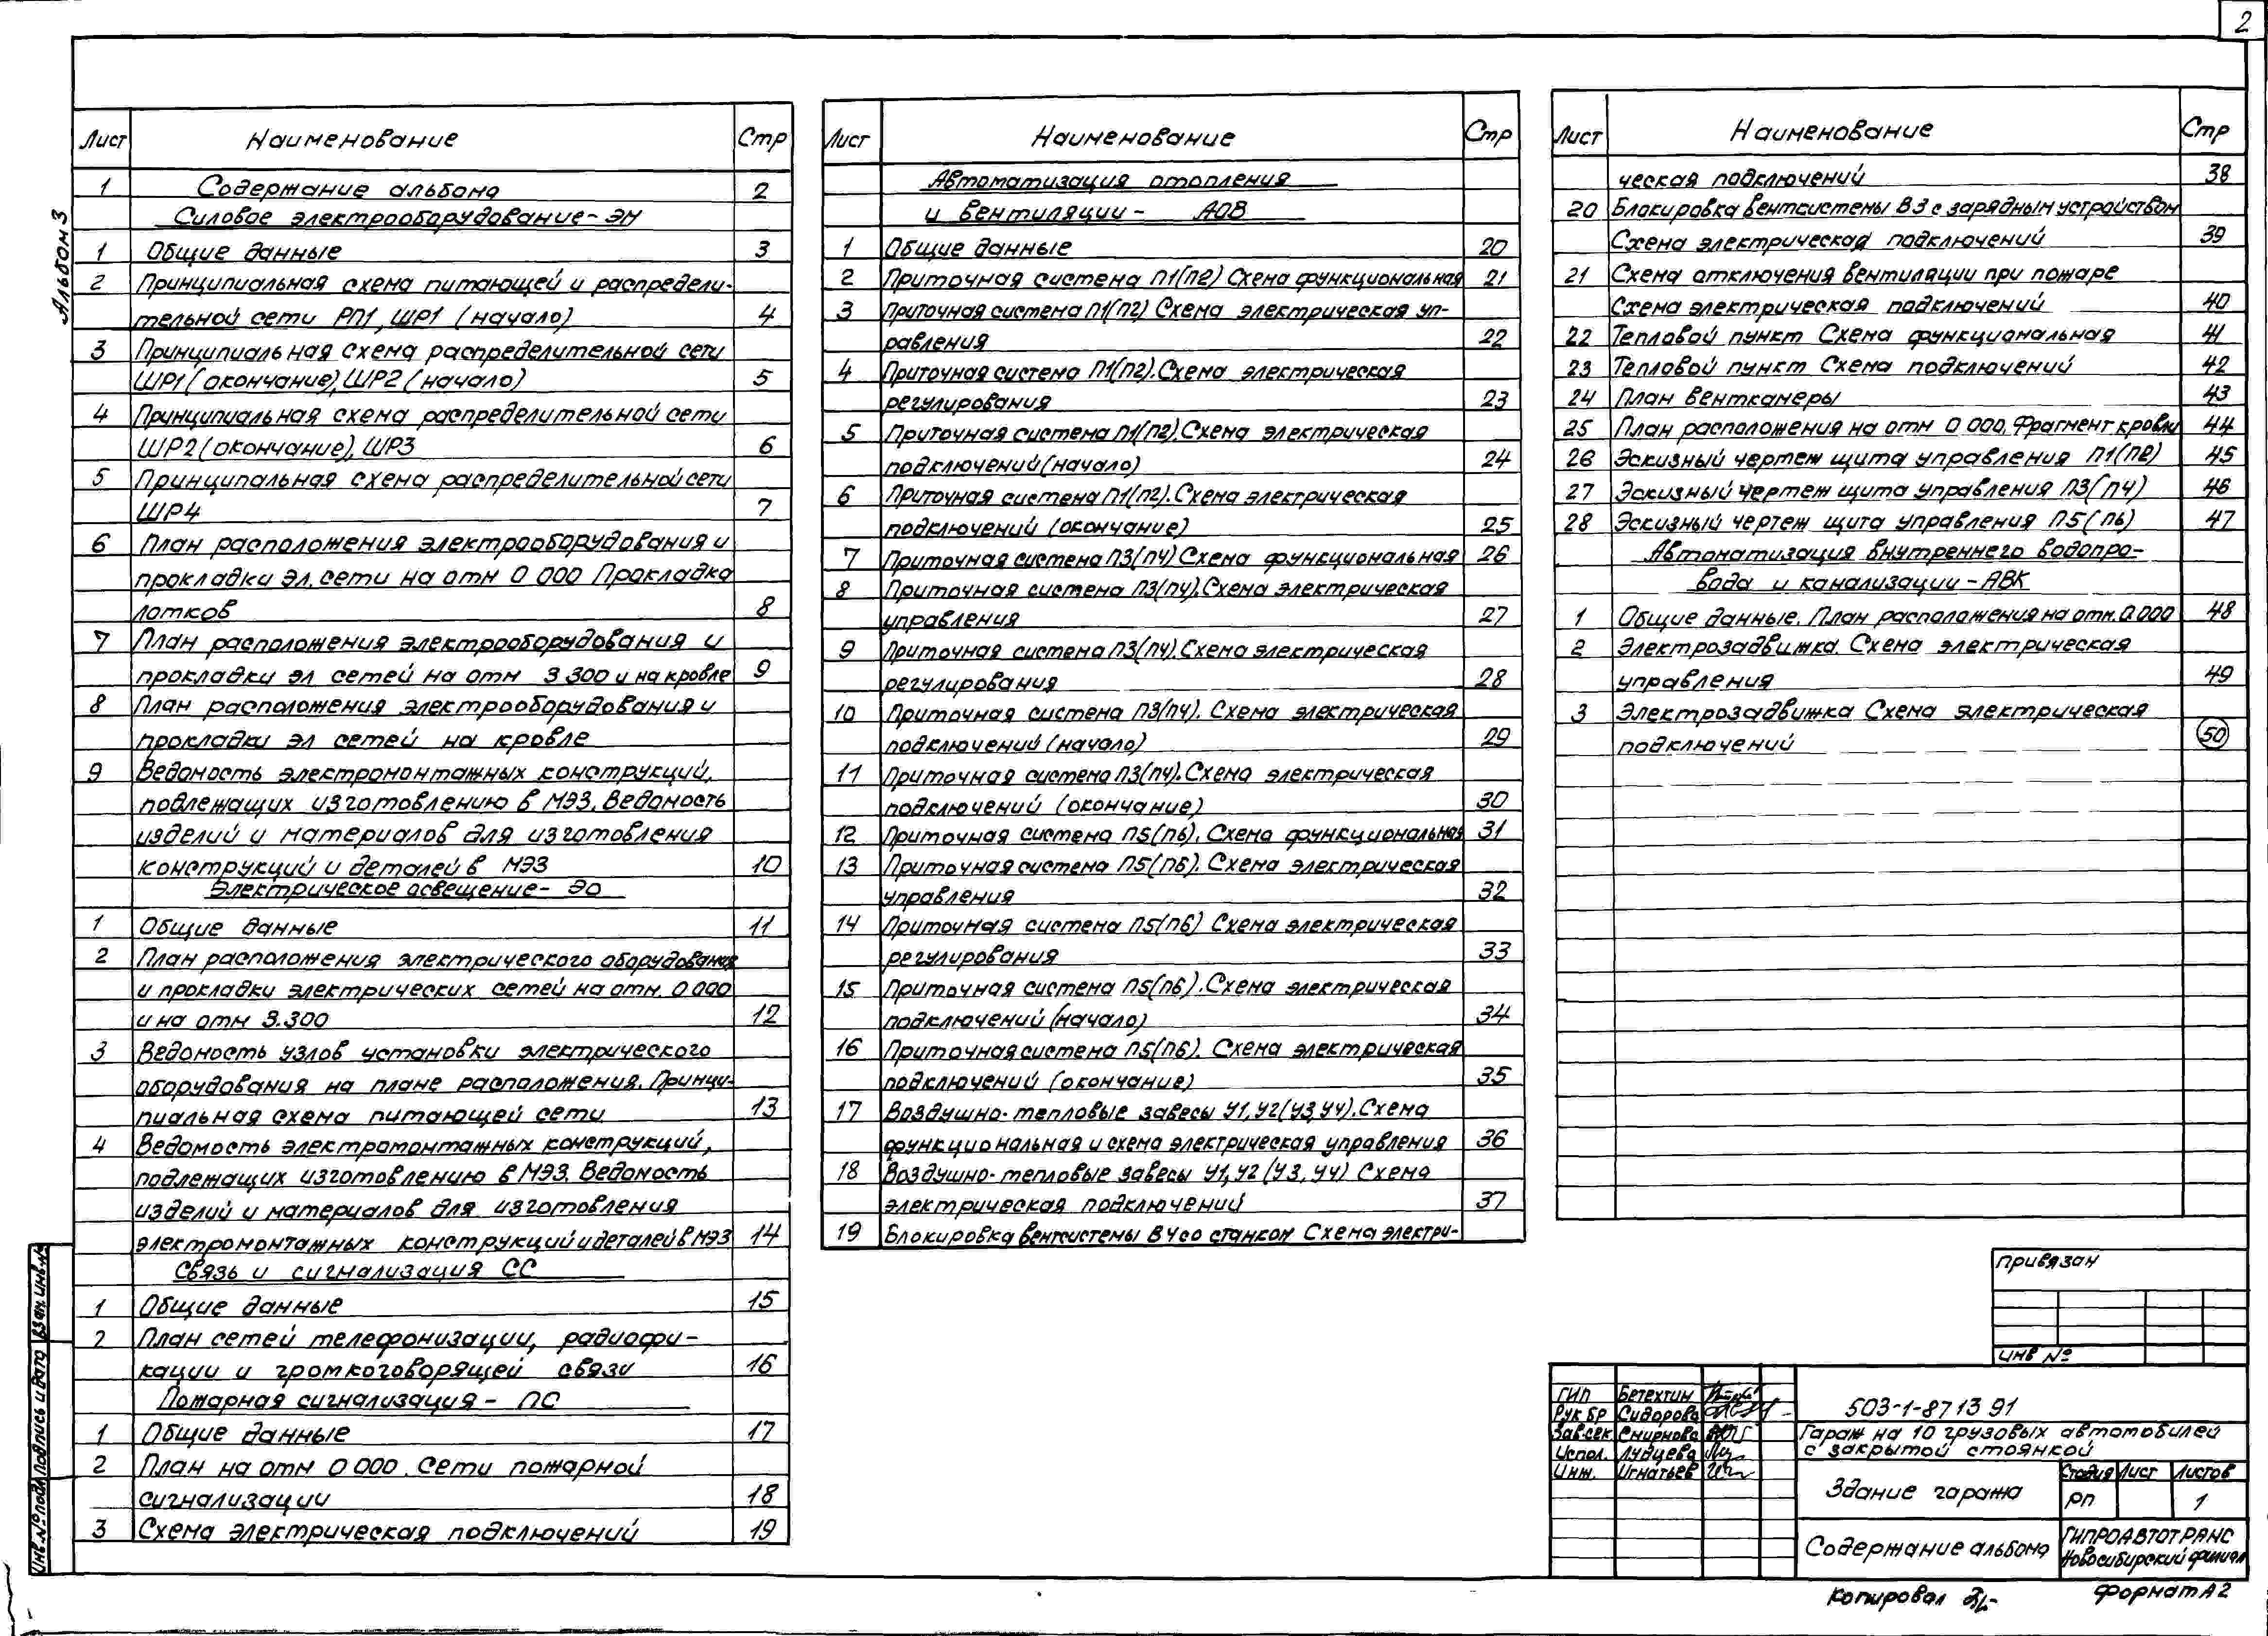 2
Альбом 3
Лист Наименование Стр
1 Содержание альбома 2
Силовое электрооборудование - ЭМ
1 Общие данные 3
2 Принципиальная схема питающей и распредели-
тельной сети РП1, ШР1 (начало) 4
3 Принципиальная схема распределительной сети
ШР1 (окончание), ШР2 (начало) 5
4 Принципиальная схема распределительной сети
ШР2 (окончание), ШР3 6
5 Принципальная схема распределительной сети
ШР4 7
6 План расположения электрооборудования и
прокладки эл. сети на отм 0 000 Прокладка
лотков 8
7 План расположения электрооборудования и
прокладки эл сетей на отм 3.300 и на кровле 9
8 План расположения электрооборудования и
прокладки эл сетей на кровле
9 Ведомость электромонтажных конструкций,
подлежащих изготовлению в МЭЗ. Ведомость
изделий и материалов для изготовления
конструкций и деталей в МЭЗ 10
Электрическое освещение - ЭО
1 Общие данные 11
2 План расположения электрического оборудования
и прокладки электрических сетей на отм. 0 000
и на отм 3.300 12
3 Ведомость узлов установки электрического
оборудования на плане расположения. Принци-
пиальная схема питающей сети 13
4 Ведомость электромонтажных конструкций,
подлежащих изготовлению в МЭЗ. Ведомость
изделий и материалов для изготовления
электромонтажных конструкций и деталей в МЭЗ 14
Связь и сигнализация СС
1 Общие данные 15
2 План сетей телефонизации, радиофи-
кации и громкоговорящей связи 16
Пожарная сигнализация - ПС
1 Общие данные 17
2 План на отм 0 000. Сети пожарной
сигнализации 18
3 Схема электрическая подключений 19
Лист Наименование Стр
Автоматизация отопления
и вентиляции - АОВ
1 Общие данные 20
2 Приточная система П1(П2) Схема функциональная 21
3 Приточная система П1(П2) Схема электрическая уп-
равления 22
4 Приточная система П1(П2). Схема электрическая
регулирования 23
5 Приточная система П1(П2). Схема электрическая
подключений (начало) 24
6 Приточная система П1(П2). Схема электрическая
подключений (окончание) 25
7 Приточная система П3(П4) Схема функциональная 26
8 Приточная система П3(П4). Схема электрическая
управления 27
9 Приточная система П3(П4). Схема электрическая
регулирования 28
10 Приточная система П3(П4). Схема электрическая
подключений (начало) 29
11 Приточная система П3(П4). Схема электрическая
подключений (окончание) 30
12 Приточная система П5(П6). Схема функциональная 31
13 Приточная система П5(П6). Схема электрическая
управления 32
14 Приточная система П5(П6) Схема электрическая
регулирования 33
15 Приточная система П5(П6). Схема электрическая
подключений (начало) 34
16 Приточная система П5(П6). Схема электрическая
подключений (окончание) 35
17 Воздушно-тепловые завесы У1, У2(У3, У4). Схема
функциональная и схема электрическая управления 36
18 Воздушно-тепловые завесы У1, У2 (У3, У4) Схема
электрическая подключений 37
19 Блокировка вентсистемы В4 со станком Схема электри-
Лист Наименование Стр
ческая подключений 38
20 Блокировка вентсистемы В3 с зарядным устройством
Схема электрическая подключений 39
21 Схема отключения вентиляции при пожаре
Схема электрическая подключений 40
22 Тепловой пункт Схема функциональная 41
23 Тепловой пункт Схема подключений 42
24 План венткамеры 43
25 План расположения на отм 0 000. Фрагмент кровли 44
26 Эскизный чертеж щита управления П1(П2) 45
27 Эскизный чертеж щита управления П3(П4) 46
28 Эскизный чертеж щита управления П5(П6) 47
Автоматизация внутреннего водопро-
вода и канализации - АВК
1 Общие данные. План расположения на отм. 0.000 48
2 Электрозадвижка. Схема электрическая
управления 49
3 Электрозадвижка Схема электрическая
подключений 50
Привязан
Инв №
ГИП Бетехтин
Рук бр Сидорова
Зав.сек Смирнова
Испол. Лубцева
Инж. Игнатьев
503-1-87 13 91
Гараж на 10 грузовых автомобилей
с закрытой стоянкой
Здание гаража
Стадия Лист Листов
РП 1
Содержание альбома
ГИПРОАВТОТРАНС
Новосибирский филиал
Копировал
Формат А2
Инв. № подл Подпись и дата Взам. инв. №